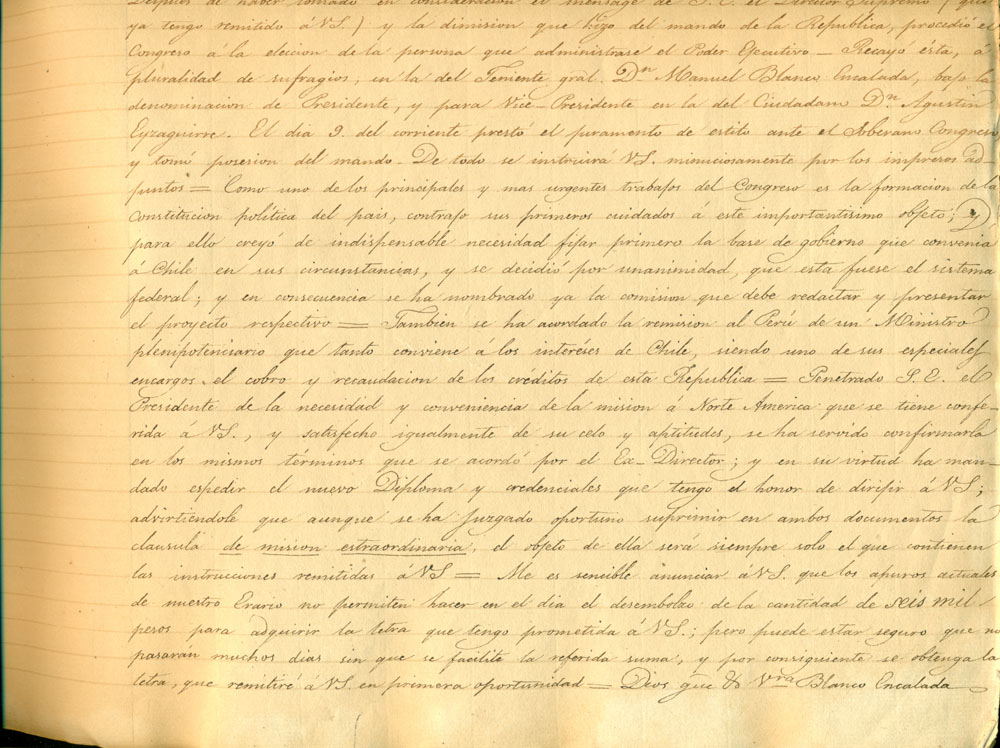 Despues de haber tomado en consideracion el mensage de S. E. el Director Supremo (que
ya tengo remitido á VS) y la dimision que hizo del mando de la Republica, procedió el
Congreso a la eleccion de la persona que administrase el Poder Ejecutivo – Recayó ésta, á
pluralidad de sufragios, en la del Teniente gral. Dn Manuel Blanco Encalada, bajo la
denominacion de Presidente, y para Vice-Presidente en la del Ciudadano Dn. Agustin
Eyzaguirre. El dia 9. del corriente prestó el juramento de estilo ante el Soberano Congreso
y tomó posesion del mando. De todo se instruirá VS. minuciosamente por los impresos ad-
juntos = Como uno de los principales y mas urgentes trabajos del Congreso es la formacion de la
constitucion politica del pais, contrajo sus primeros cuidados á este importantisimo objeto; y
para ello creyó de indispensable necesidad fijar primero la base de gobierno que convenia
á Chile en sus circunstancias, y se decidió por unanimidad, que esta fuese el sistema
federal; y en consecuencia se ha nombrado ya la comision que debe redactar y presentar
el proyecto respectivo = Tambien se ha acordado la remision al Perú de un Ministro
plenipotenciario que tanto conviene á los interéses de Chile, siendo uno de sus especiales
encargos el cobro y recaudacion de los creditos de esta Republica = Penetrado S. E. el
Presidente de la necesidad y conveniencia de la mision á Norte America que se tiene confe-
rida á VS., y satisfecho igualmente de su celo y aptitudes, se ha servido confirmarla
en los mismos términos que se acordó por el Ex-Director; y en su virtud ha man-
dado espedir el nuevo Diploma y credenciales que tengo el honor de dirijir á VS;
advirtiendole que aunque se ha juzgado oportuno suprimir en ambos documentos la
clausula de mision estraordinaria, el objeto de ella será siempre solo el que contienen
las instrucciones remitidas á VS = Me es sencible anunciar á VS. que los apuros actuales
de nuestro Erario no permiten hacer en el dia el desembolzo de la cantidad de seis mil
pesos para adquirir la letra que tengo prometida á VS.; pero puede estar seguro que no
pasarán muchos dias sin que se facilite la referida suma, y por consiguiente se obtenga la
letra, que remitiré á VS. en primera oportunidad = Dios gue & Vra Blanco Encalada